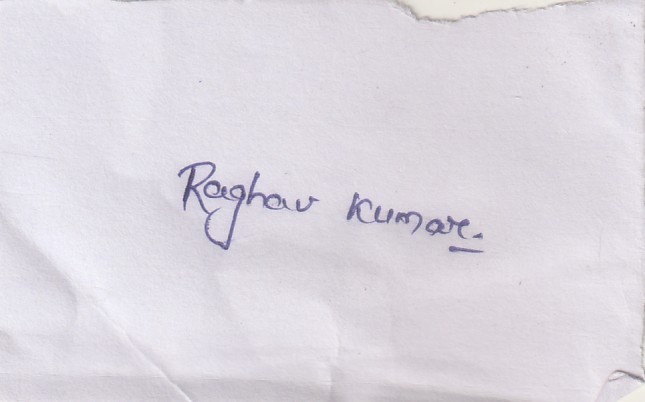 Raghav Kumar.